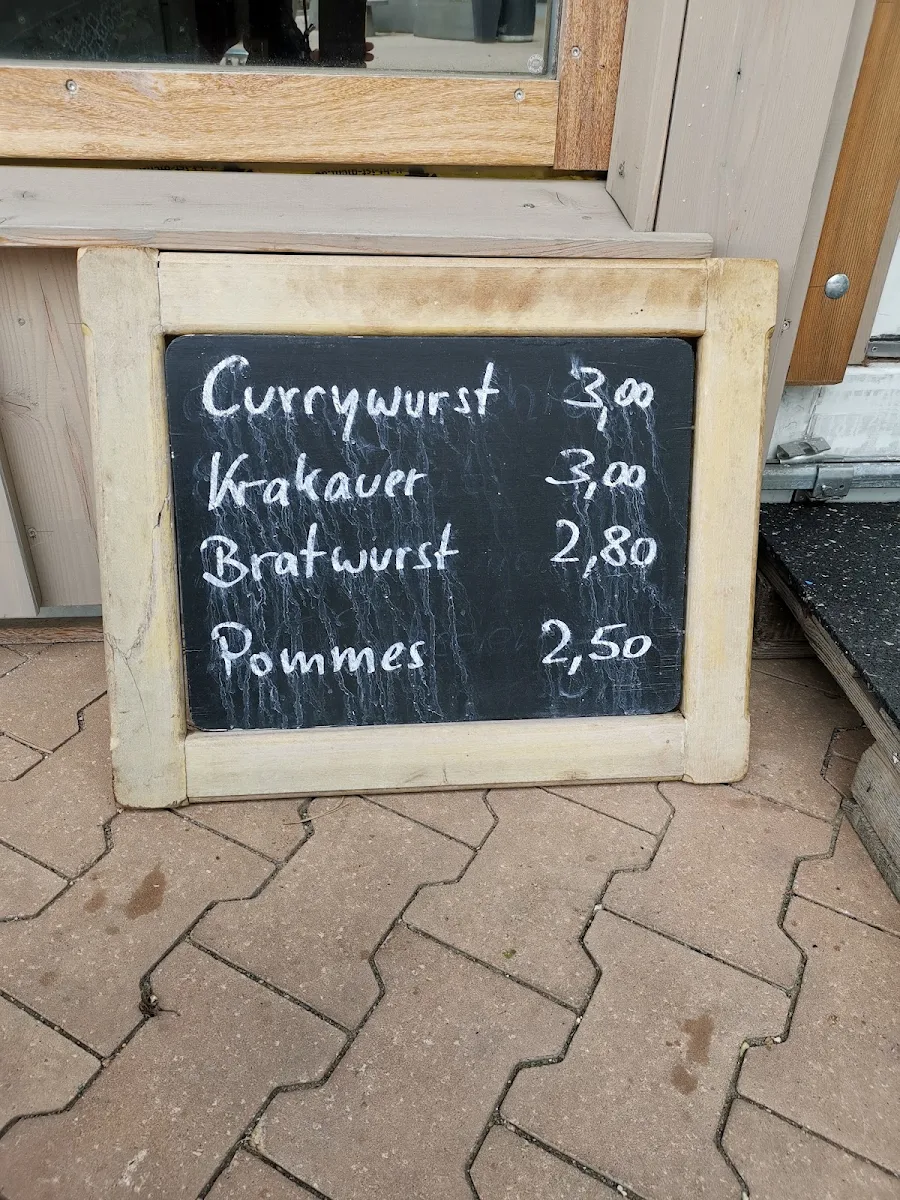 Currywurst 3,00
Krakauer 3,00
Bratwurst 2,80
Pommes 2,50